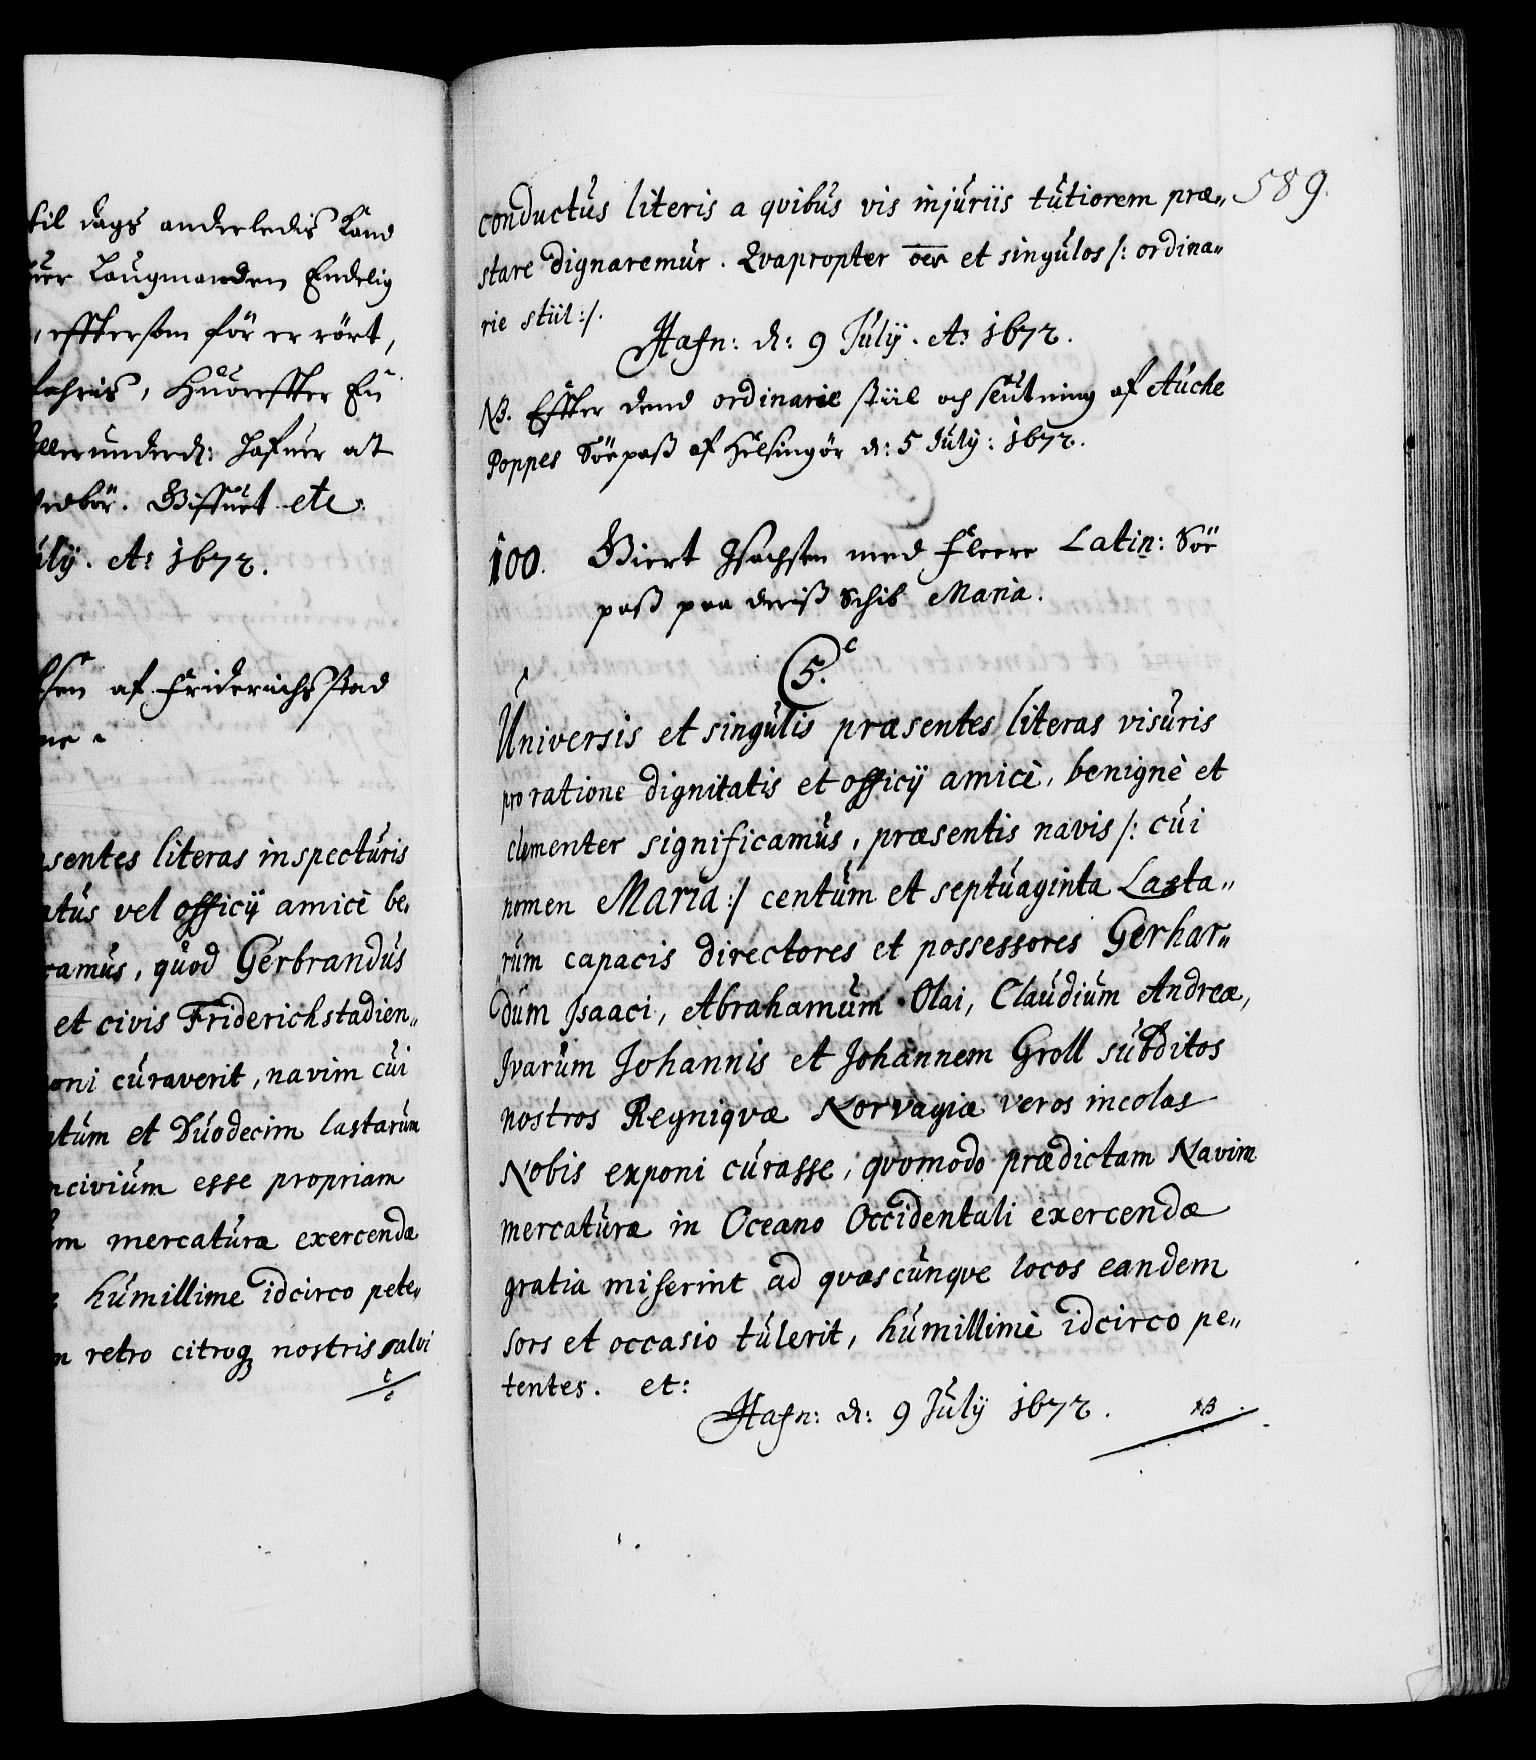 til dags anderledis kand
huer Laugmanden Endelig
, effttersom för er rört,
Huoreffter En
Hafuer at
vidbör. Gifuet etc.
July. Ao 1672.
sen af Friderichsstad
ne.
sentes literas inspecturis
atus vel officij amicè be,,
camus, quod Gerbrandus
et civis Friderichstadien,,
oni curaverit, navim cui
ntum et Duodecim lastarum
ncivium esse propriam
m mercaturæ exercendæ
humillime idcirco pete,,
m retro citroq3 nostris salvi
589.
conductus literis a qvibus vis injuriis tutiorem præ,,
stare dignaremur. Qvapropter oēs et singulos /: ordina,,
rie stiil :/.
Hafn: d: 9 Julij. Ao 1672.
NB. Effter dend ordinarie stiil och slutning af Auche
Poppes Söepass af Helsingör d: 5 July: 1672.
100. Giert Isachsen med fleere Latin: Söe
pass paa deriss Schib Maria.
C 5.
Universis et singulis præsentes literas visuris
pro ratione dignitatis et officij amicè, benignè et
clementer significamus, præsentis navis /: cui
nomen Maria :/ centum et septuaginta Lasta,,
rum capacis directores et possessores Gerhar,,
dum Isaaci, Abrahamum Olai, Claudium Andreæ,
Ivarum Johannis et Johannem Groll subditos
nostros Regniqvæ Norvagiæ veros incolas
Nobis exponi curasse, qvomodo prædictam Navim
mercaturæ in Oceano Occidentali exercendæ
gratia miserint ad qvascunqve locos eandem
sors et occasio tulerit, humillimè idcirco pe,,
tentes. et:
Hafn: d: 9 July 1672. NB.